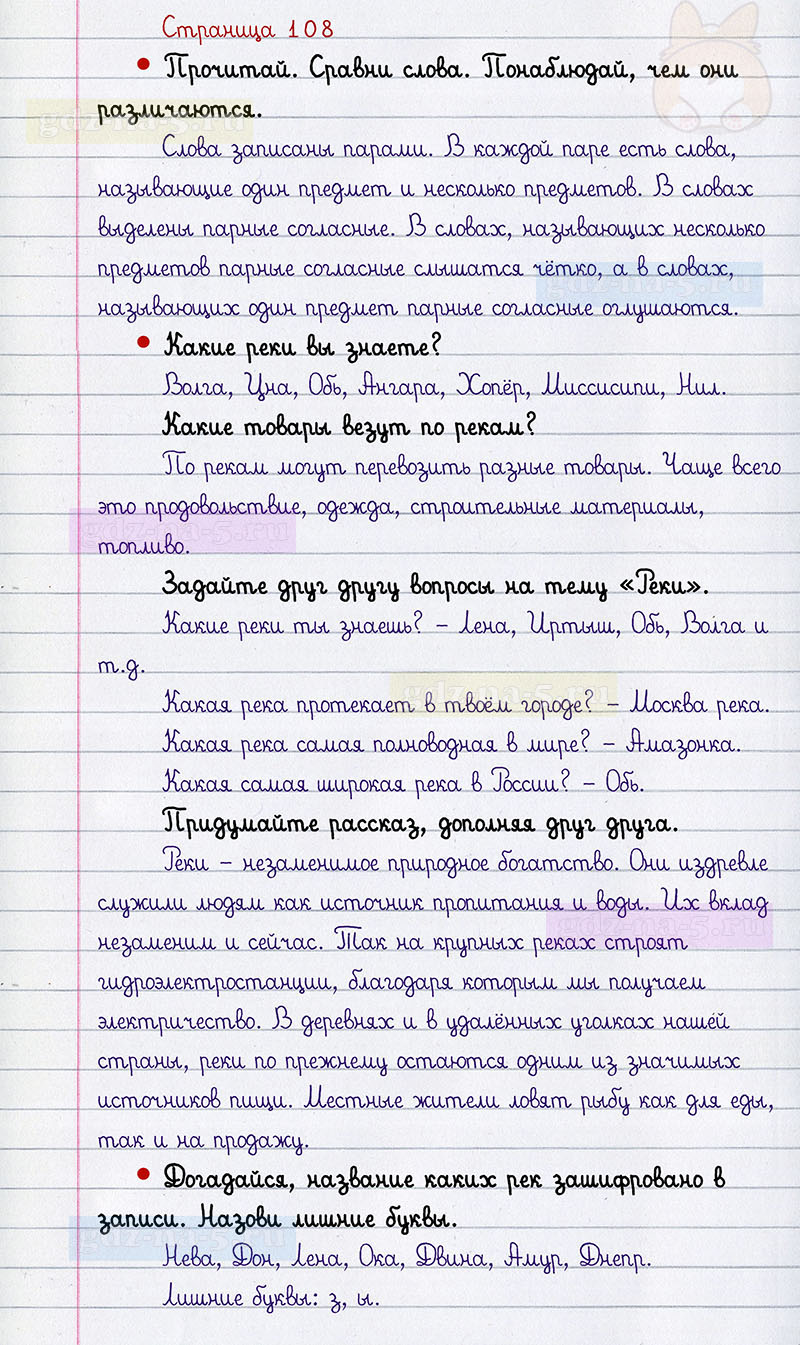 Страница 108
• Прочитай. Сравни слова. Понаблюдай, чем они
различаются.
gdz-na-5.ru
Слова записаны парами. В каждой паре есть слова,
называющие один предмет и несколько предметов. В словах
выделены парные согласные. В словах, называющих несколько
предметов парные согласные слышатся чётко, а в словах,
gdz-na-5.ru
называющих один предмет парные согласные оглушаются.
• Какие реки вы знаете?
Волга, Цна, Обь, Ангара, Хопёр, Миссисипи, Нил.
Какие товары везут по рекам?
По рекам могут перевозить разные товары. Чаще всего
это продовольствие, одежда, строительные материалы,
gdz-na-5.ru
топливо.
Задайте друг другу вопросы на тему «Реки».
Какие реки ты знаешь? – Лена, Иртыш, Обь, Волга и
т.д.
gdz-na-5.ru
Какая река протекает в твоём городе? – Москва река.
Какая река самая полноводная в мире? – Амазонка.
Какая самая широкая река в России? – Обь.
Придумайте рассказ, дополняя друг друга.
Реки – незаменимое природное богатство. Они издревле
служили людям как источник пропитания и воды. Их вклад
gdz-na-5.ru
незаменим и сейчас. Так на крупных реках строят
гидроэлектростанции, благодаря которым мы получаем
электричество. В деревнях и в удалённых уголках нашей
страны, реки по прежнему остаются одним из значимых
источников пищи. Местные жители ловят рыбу как для еды,
так и на продажу.
• Догадайся, название каких рек зашифровано в
записи. Назови лишние буквы.
gdz-na-5.ru
Нева, Дон, Лена, Ока, Двина, Амур, Днепр.
Лишние буквы: з, ы.